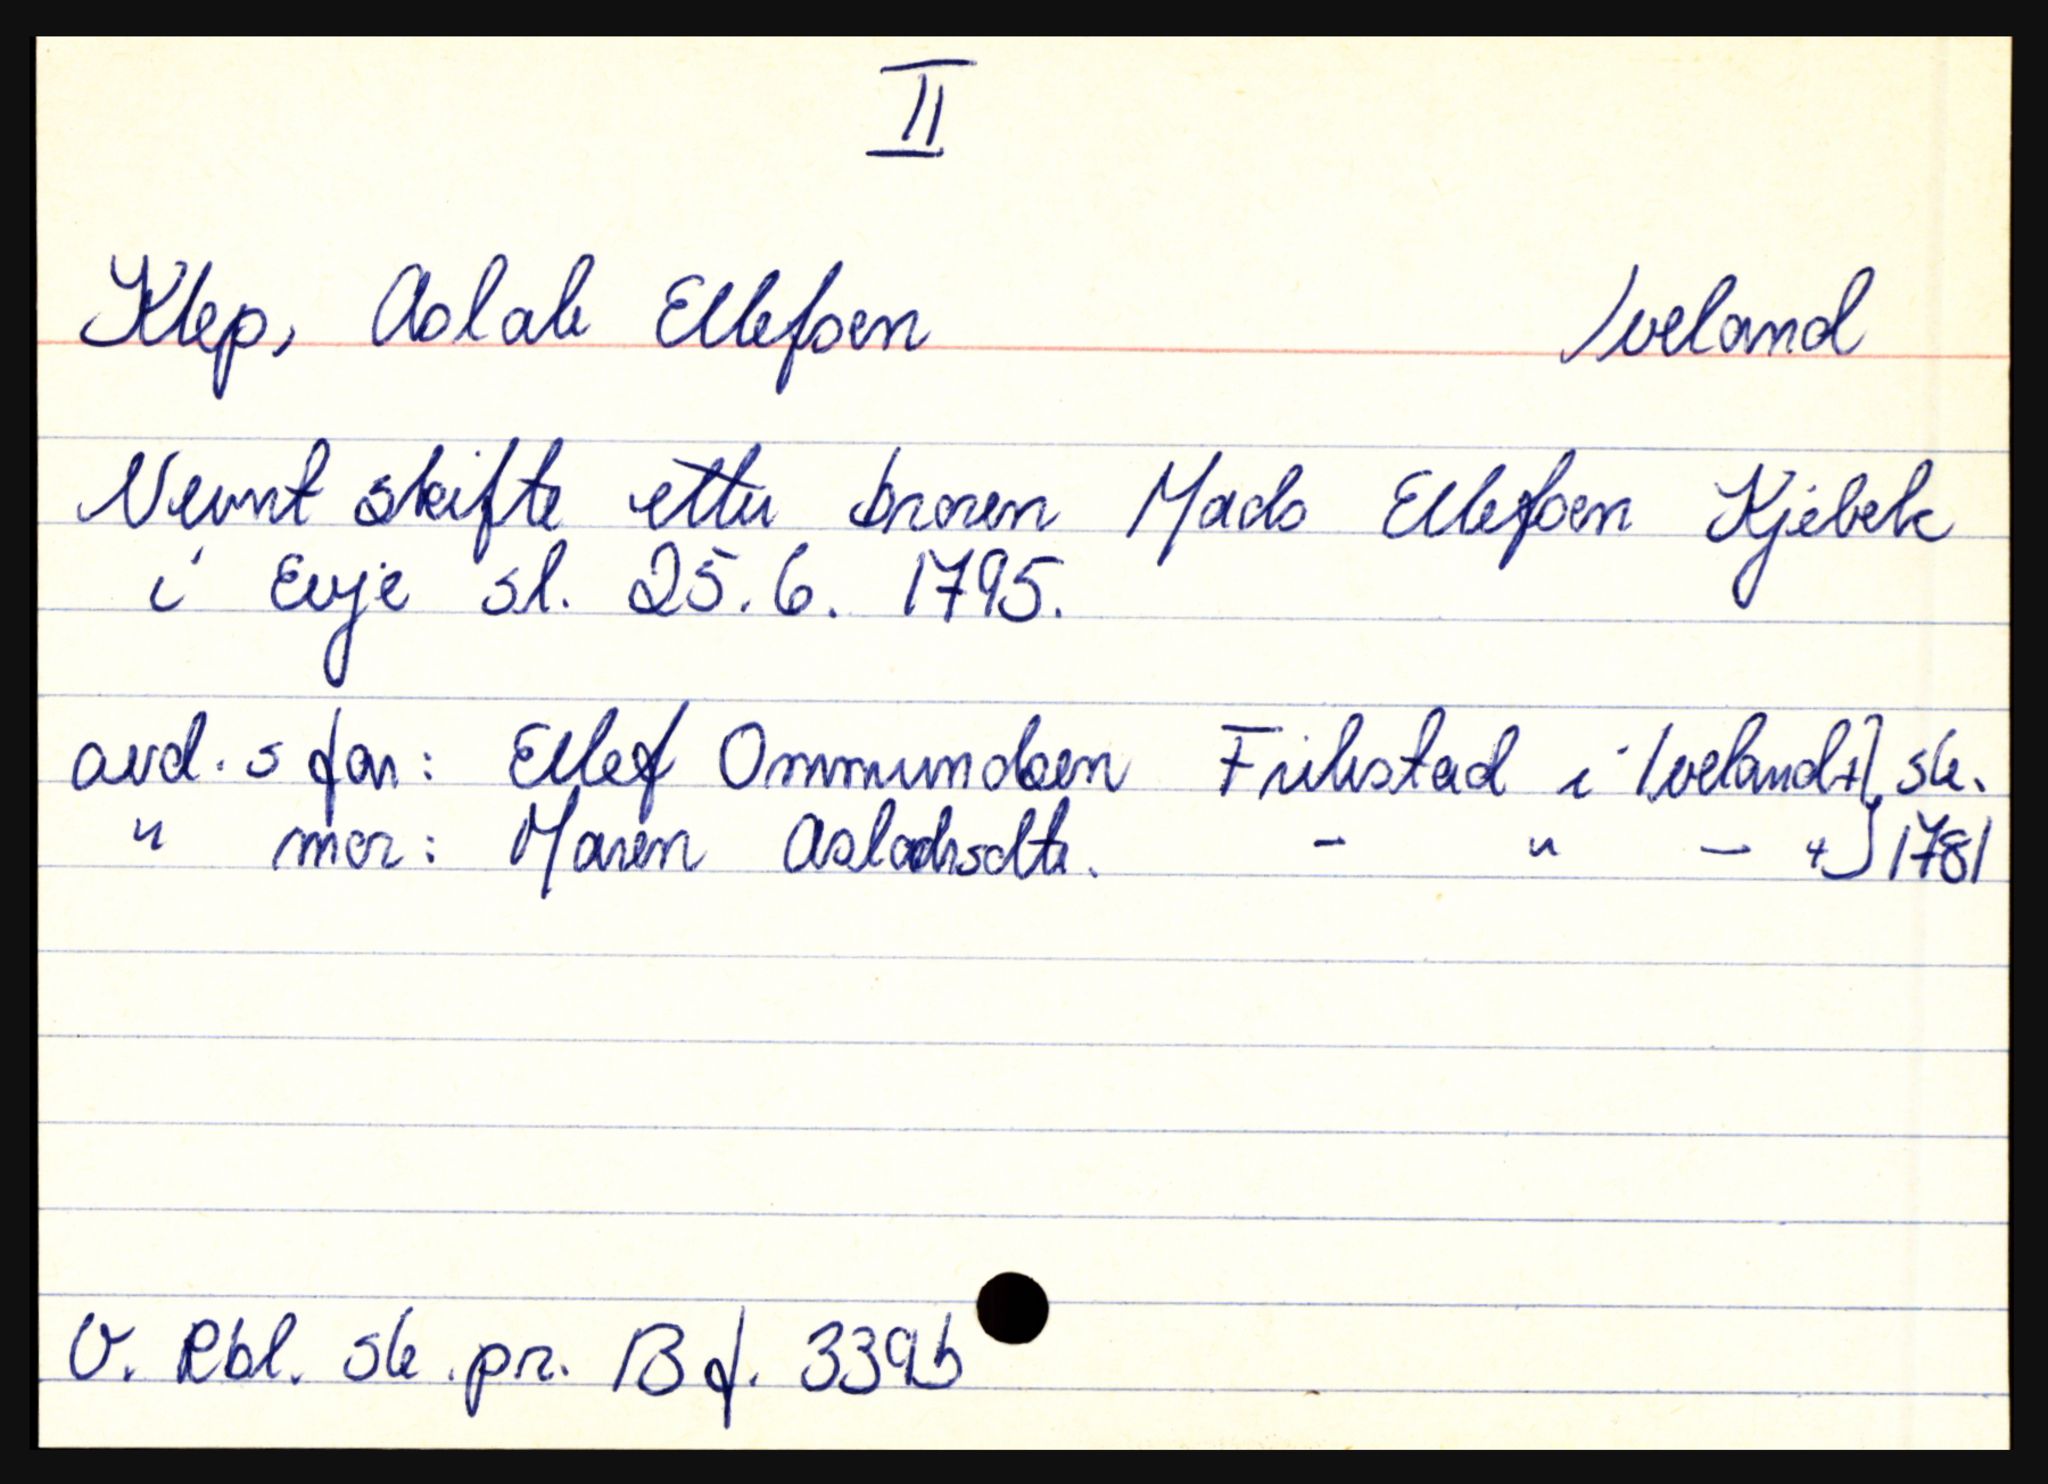 II
Klep, Aslak Ellefsen Iveland
Nevnt skifte etter broren Mads Ellefsen Kjebek
i Evje sl. 25.6. 1795.
avd. s far: Ellef Ommundsen Frikstad i Iveland + } sk.
" mor: Maren Aslaksdtr. - " - + } 1781
V. Rbl. sk. pr. B f. 339b